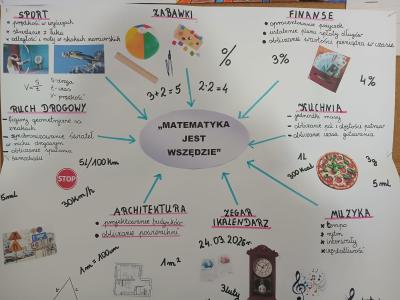 SPORT
• prędkość w wyścigach
• strzelanie z łuku
• odległość i noty w skokach narciarskich
V = S/t
S - droga
t - czas
V - prędkość
ZABAWKI
3 + 2 = 5
2 · 2 = 4
%
FINANSE
• oprocentowanie pożyczek
• ustalenie planu spłaty długów
• obliczanie wartości pieniądza w czasie
3%
4%
RUCH DROGOWY
- figury geometryczne na znakach
- synchronizowanie świateł w ruchu drogowym
- obliczanie spalania samochodu
5L/100km
STOP
30km/h
„MATEMATYKA
JEST
WSZĘDZIE”
KUCHNIA
- jednostki masy
- obliczanie
- obliczanie czasu gotowania
1L
300kcal
3g
5ml
5ml
ARCHITEKTURA
• projektowanie budynków
• obliczanie powierzchni
1m = 100cm
1m²
ZEGAR
I KALENDARZ
24.03.2025r
3luty
MUZYKA
• tempo
• rytm
• interwały